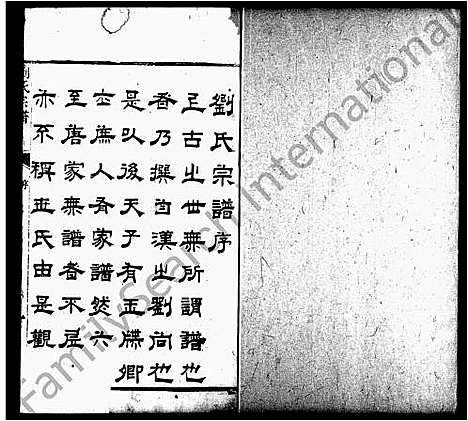 劉氏宗譜序
上古之世無所謂譜也
香乃撰自漢之劉向也
是以後天子有玉牒卿
士庶人有家譜然六
至唐家無譜者不足
亦不稱並氏由是觀
劉氏宗譜
序
FamilySearch International